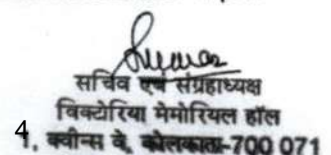 सचिव एवं संग्रहाध्यक्ष
विक्टोरिया मेमोरियल हॉल
4
1, क्वीन्स वे, कोलकाता-700 071